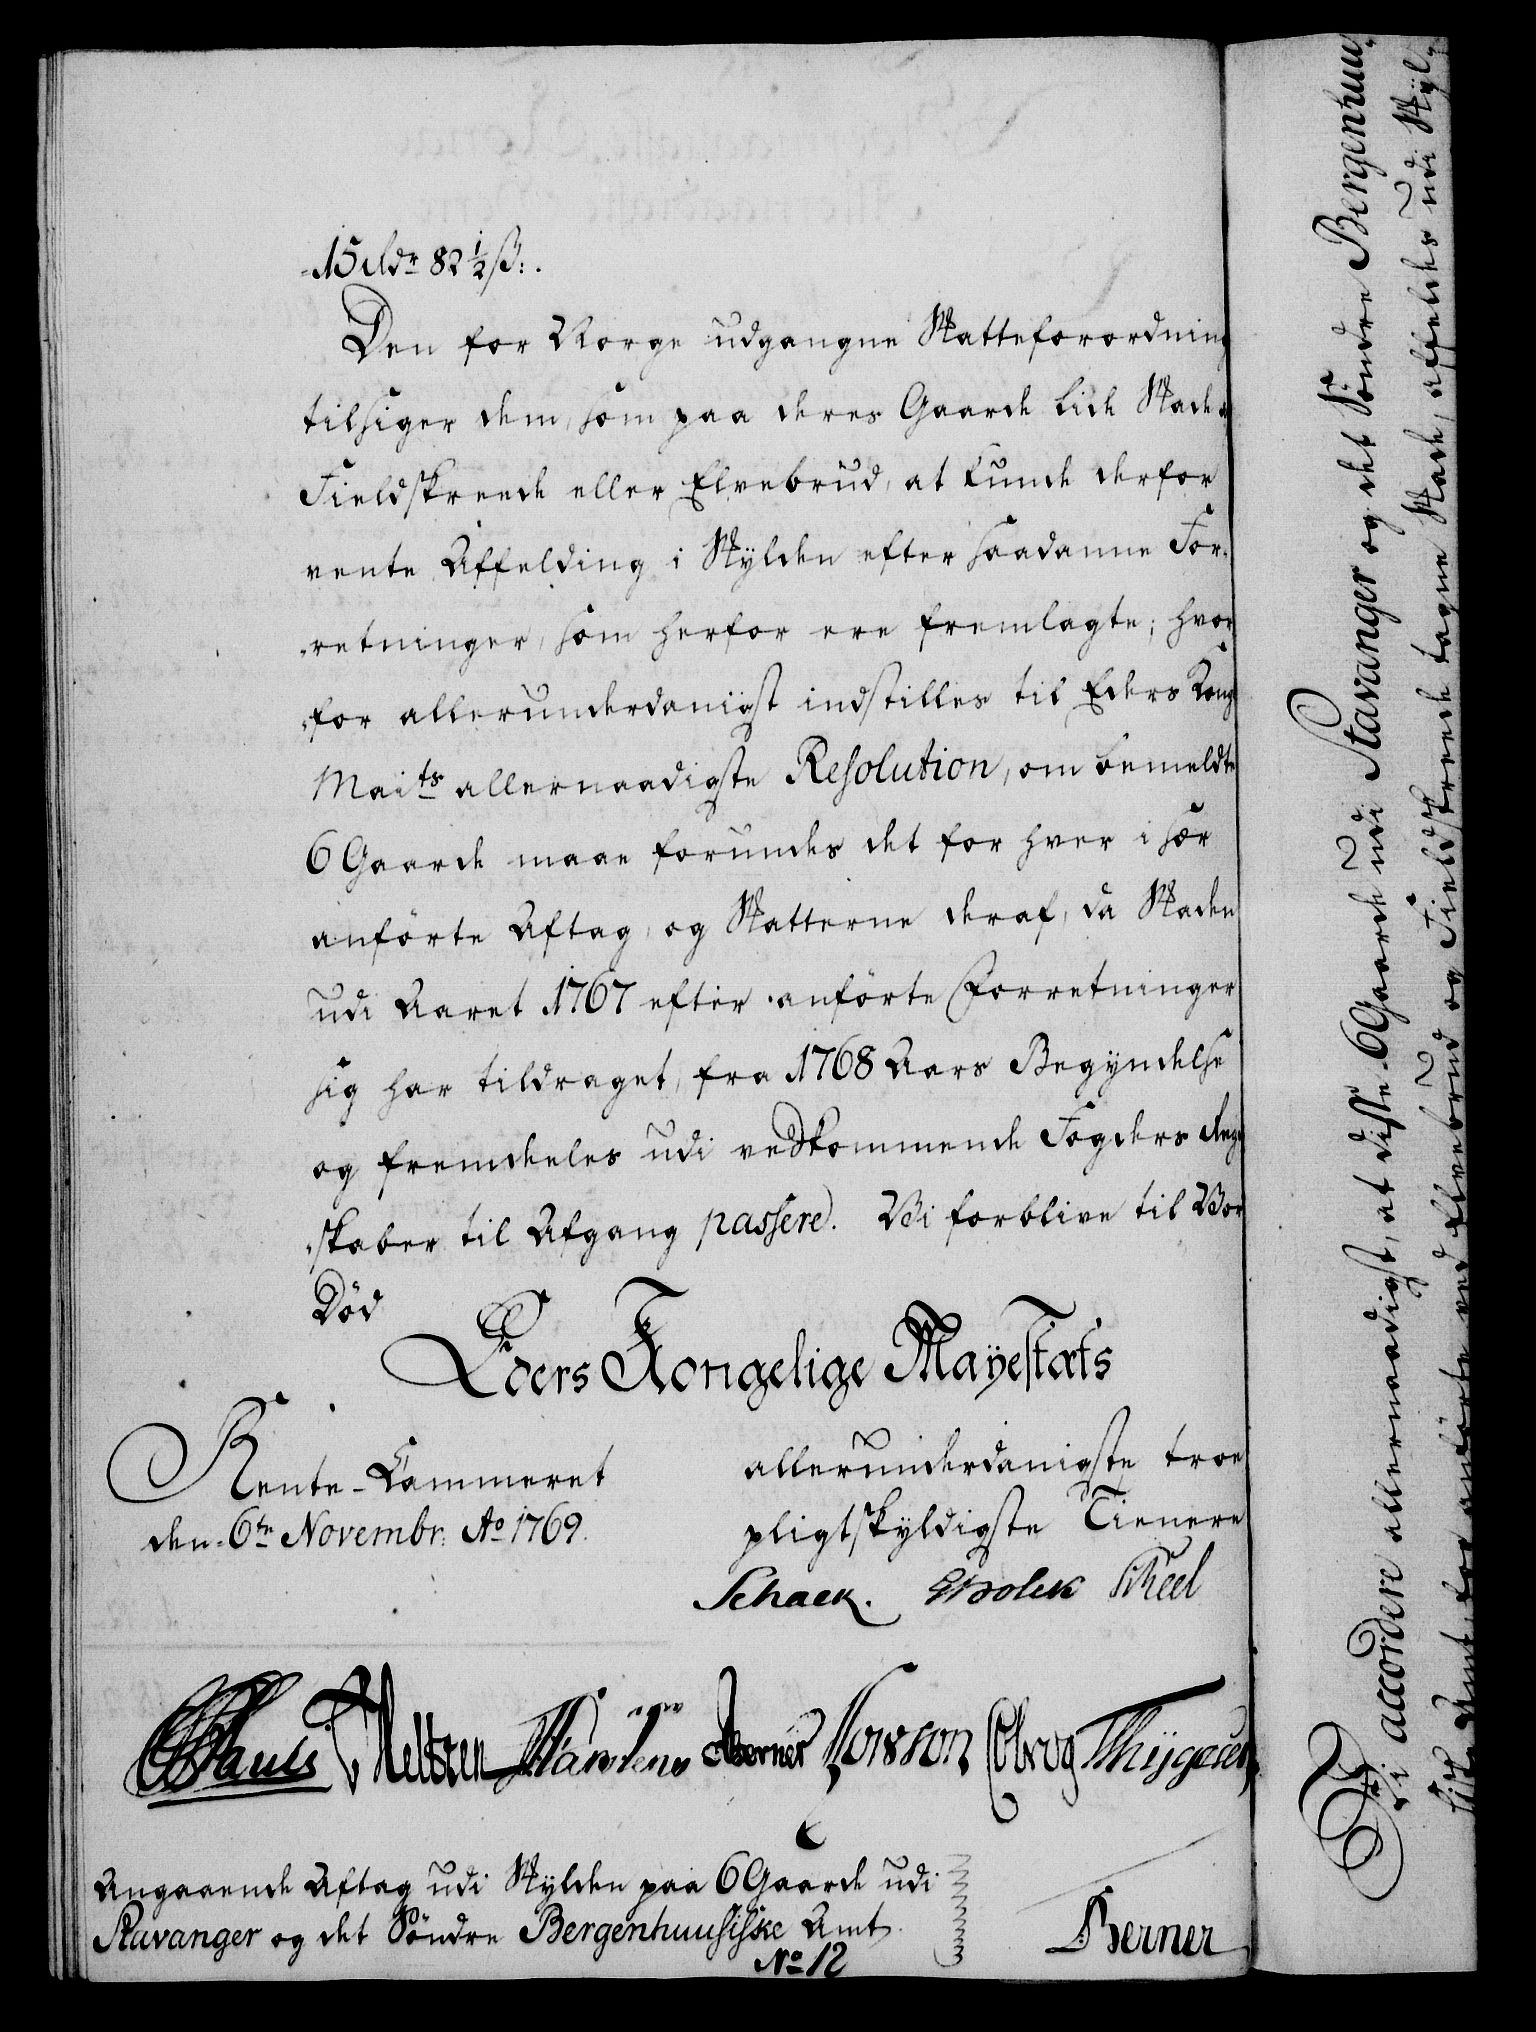 15 rdr 82 1/2 ß:.
Den for Norge udgangne Skatteforordning
tilsiger dem, som paa deres Gaarde lide Skade
Fieldskreede eller Elvebrud, at kunde derfor
vente Affelding i Skylden efter saadanne For-
retninger, som herfor ere fremlagte; hvor
for allerunderdanigst indstilles til Eders Kong
Maits allernaadigste Resolution, om bemeldte
6 Gaarde maae forundes det for hver i sær
anförte Aftag, og Skatterne deraf, da Skaden
udi Aaret 1767 efter anförte Forretninger
sig har tildraget, fra 1768 Aars Begyndelse
og fremdeeles udi vedkommende Fogders Regn
skaber til Afgang passere. Vi forblive til Vor
Död
Eders Kongelige Mayestæts
Rente-Cammeret
den 6te Novembr: Ao 1769.
allerunderdanigste troe
pligtskyldigste Tienere
Schack. Scheel
Berner Thygesen
Angaaende Aftag udi Skylden paa 6 Gaarde udi
Stavanger og det Söndre Bergenhuusiske Amt.
No 12
Berner
Vi accordere allernaadigst, at disse 6 Gaarde udi Stavanger og det Söndre Bergenhuu-
siske Amt, for anförte ved Elvebrud og Fieldskreede tagne Skade, affeldes udi Skyl-